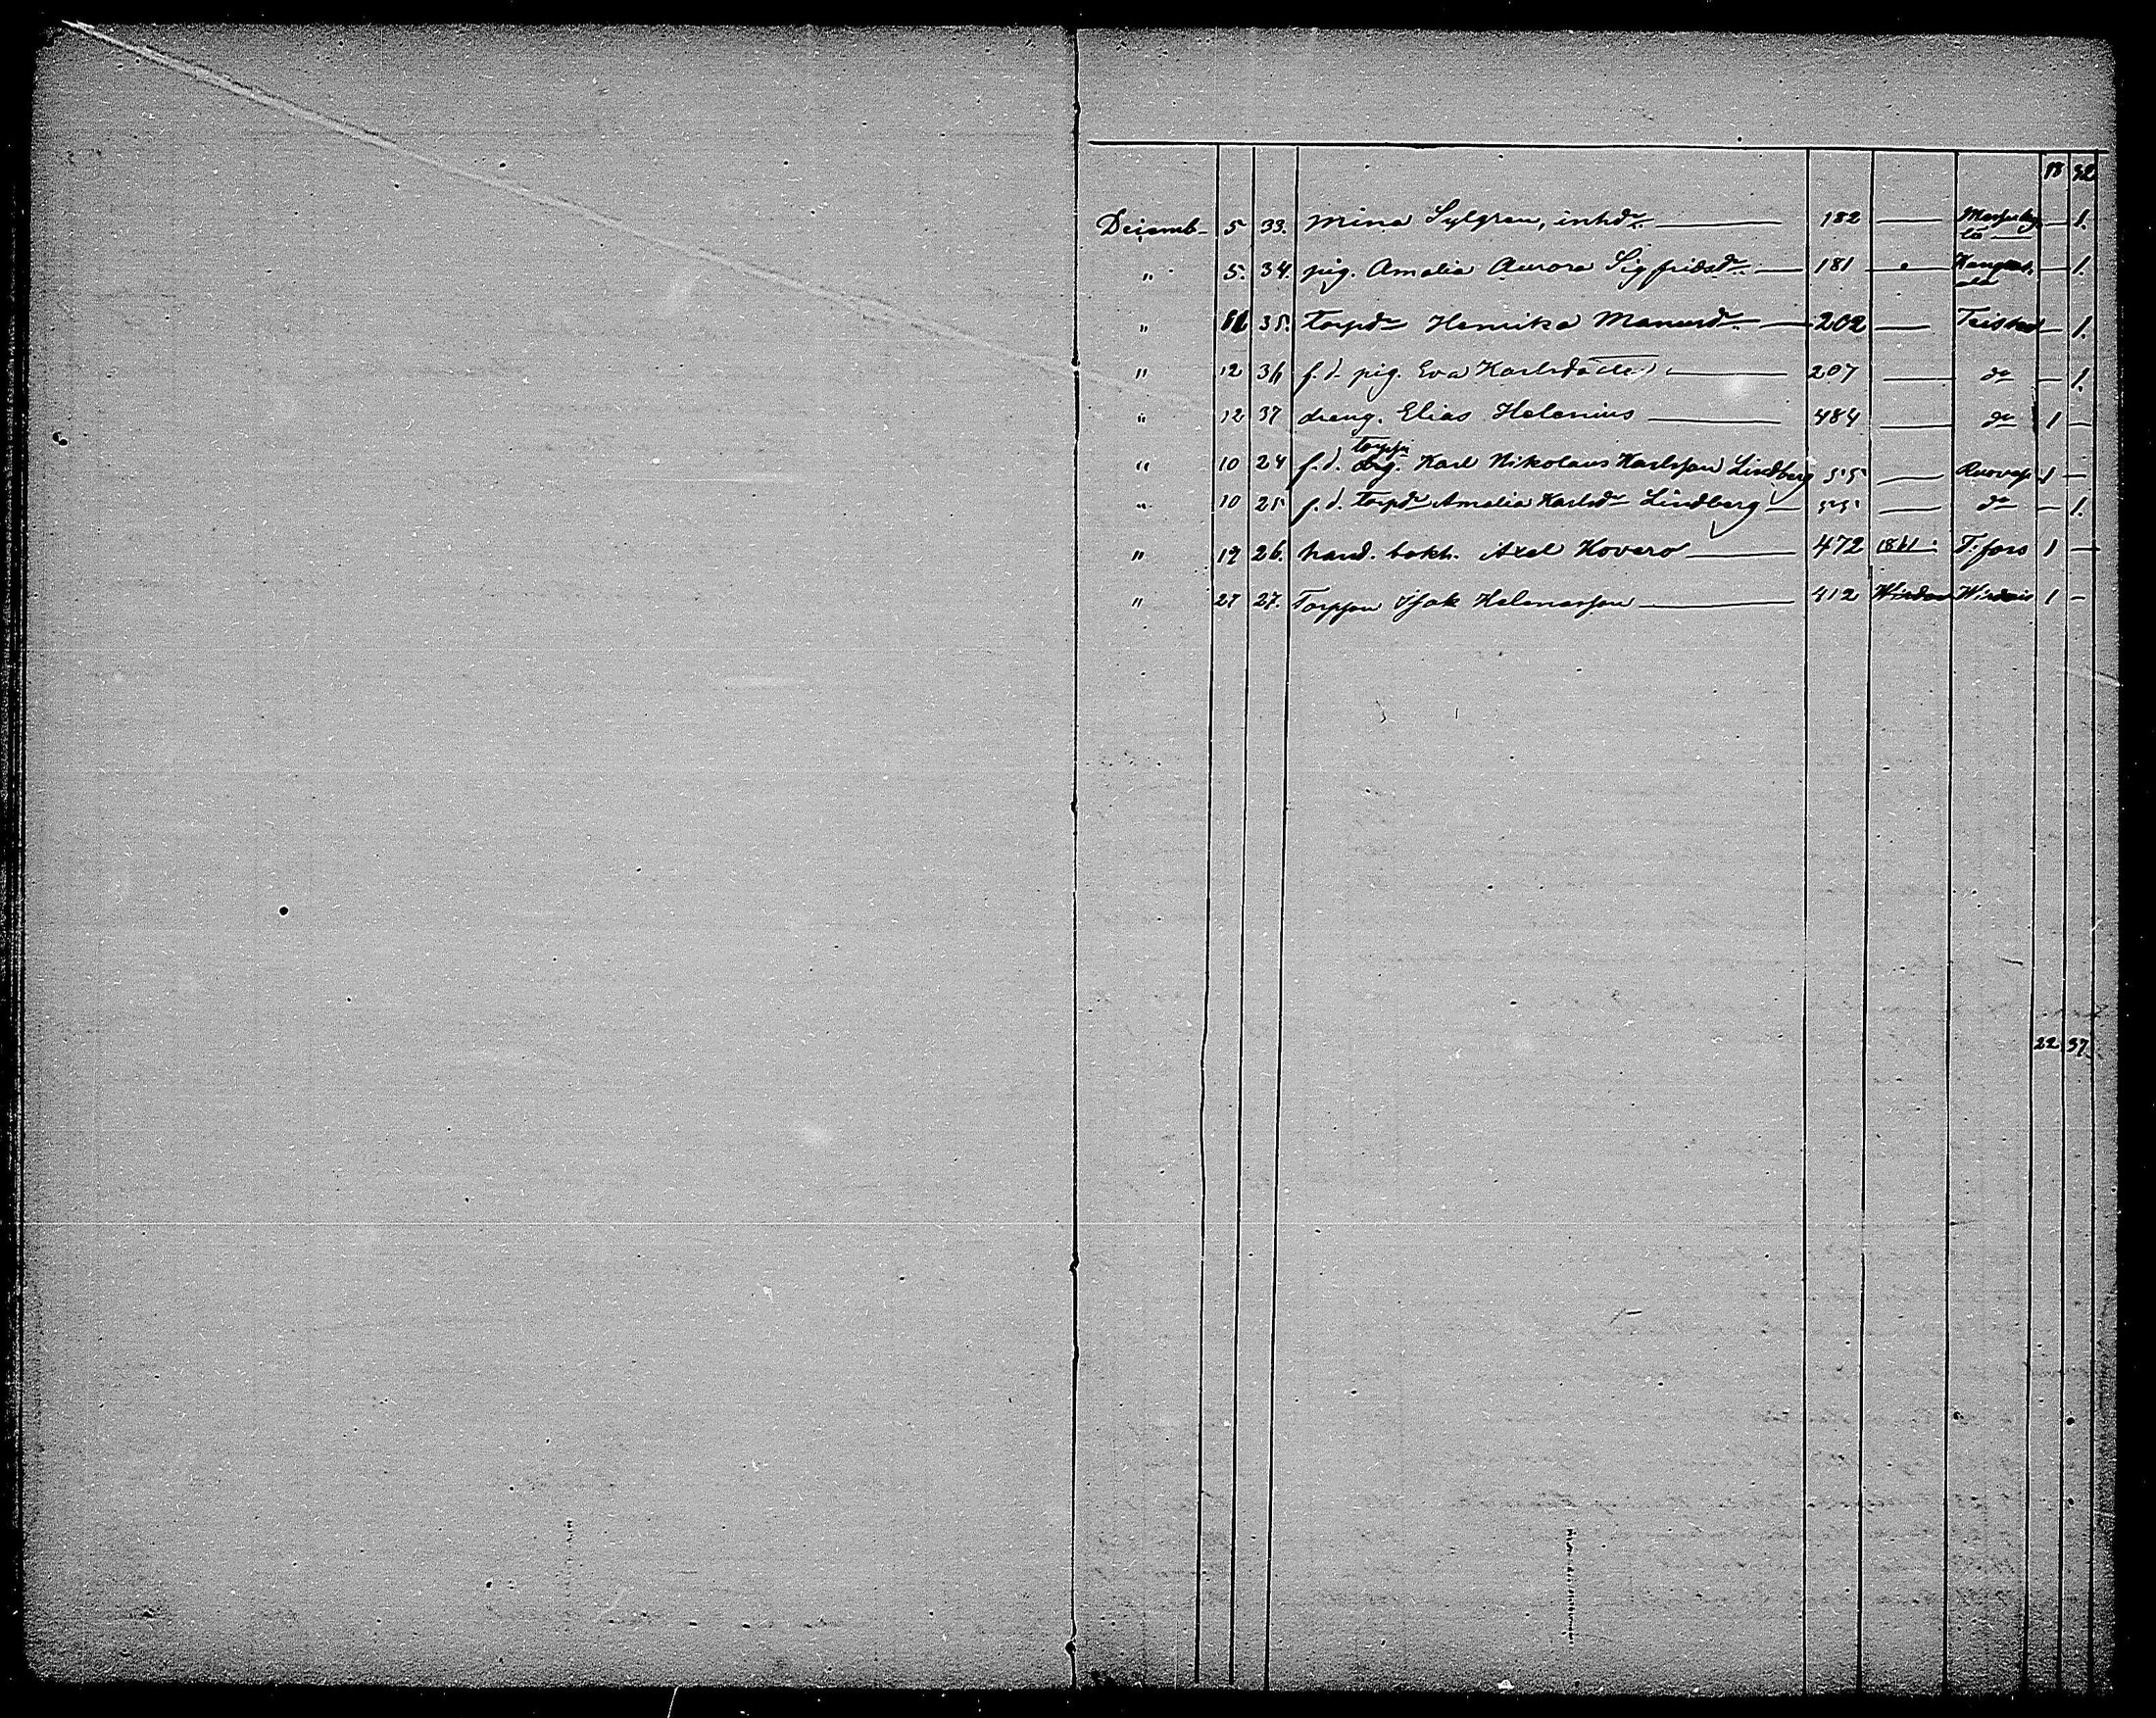 18 32
Decemb. 5 33. Mina Sylgren, inhdr. — 182 — — 1.
lä —
" 5. 34. pig. Amalia Aurora Sigfridsdr. — 181 — — 1.
ala
" 11 35. torpdr Henrika Manuelsdr. — 202 — Teisko — 1.
" 12 36 f.d. pig. Eva Karlsdotter — 207 — do — 1.
" 12 37 dreng. Elias Helenius — 484 — do 1 —
torpps
" 10 24 f.d. drg. Karl Nikolaus Karlsson Lindberg 55 — Ruoves. 1 —
" 10 25 f.d. torpdr Amalia Karlsdr Lindberg — 55 — do — 1.
" 19 26. hand. bokh. Axel Hovero — 472 T:fors 1 —
" 27 27. Torpson Isak Helenasson — 412 Wirdois 1 —
22 37.